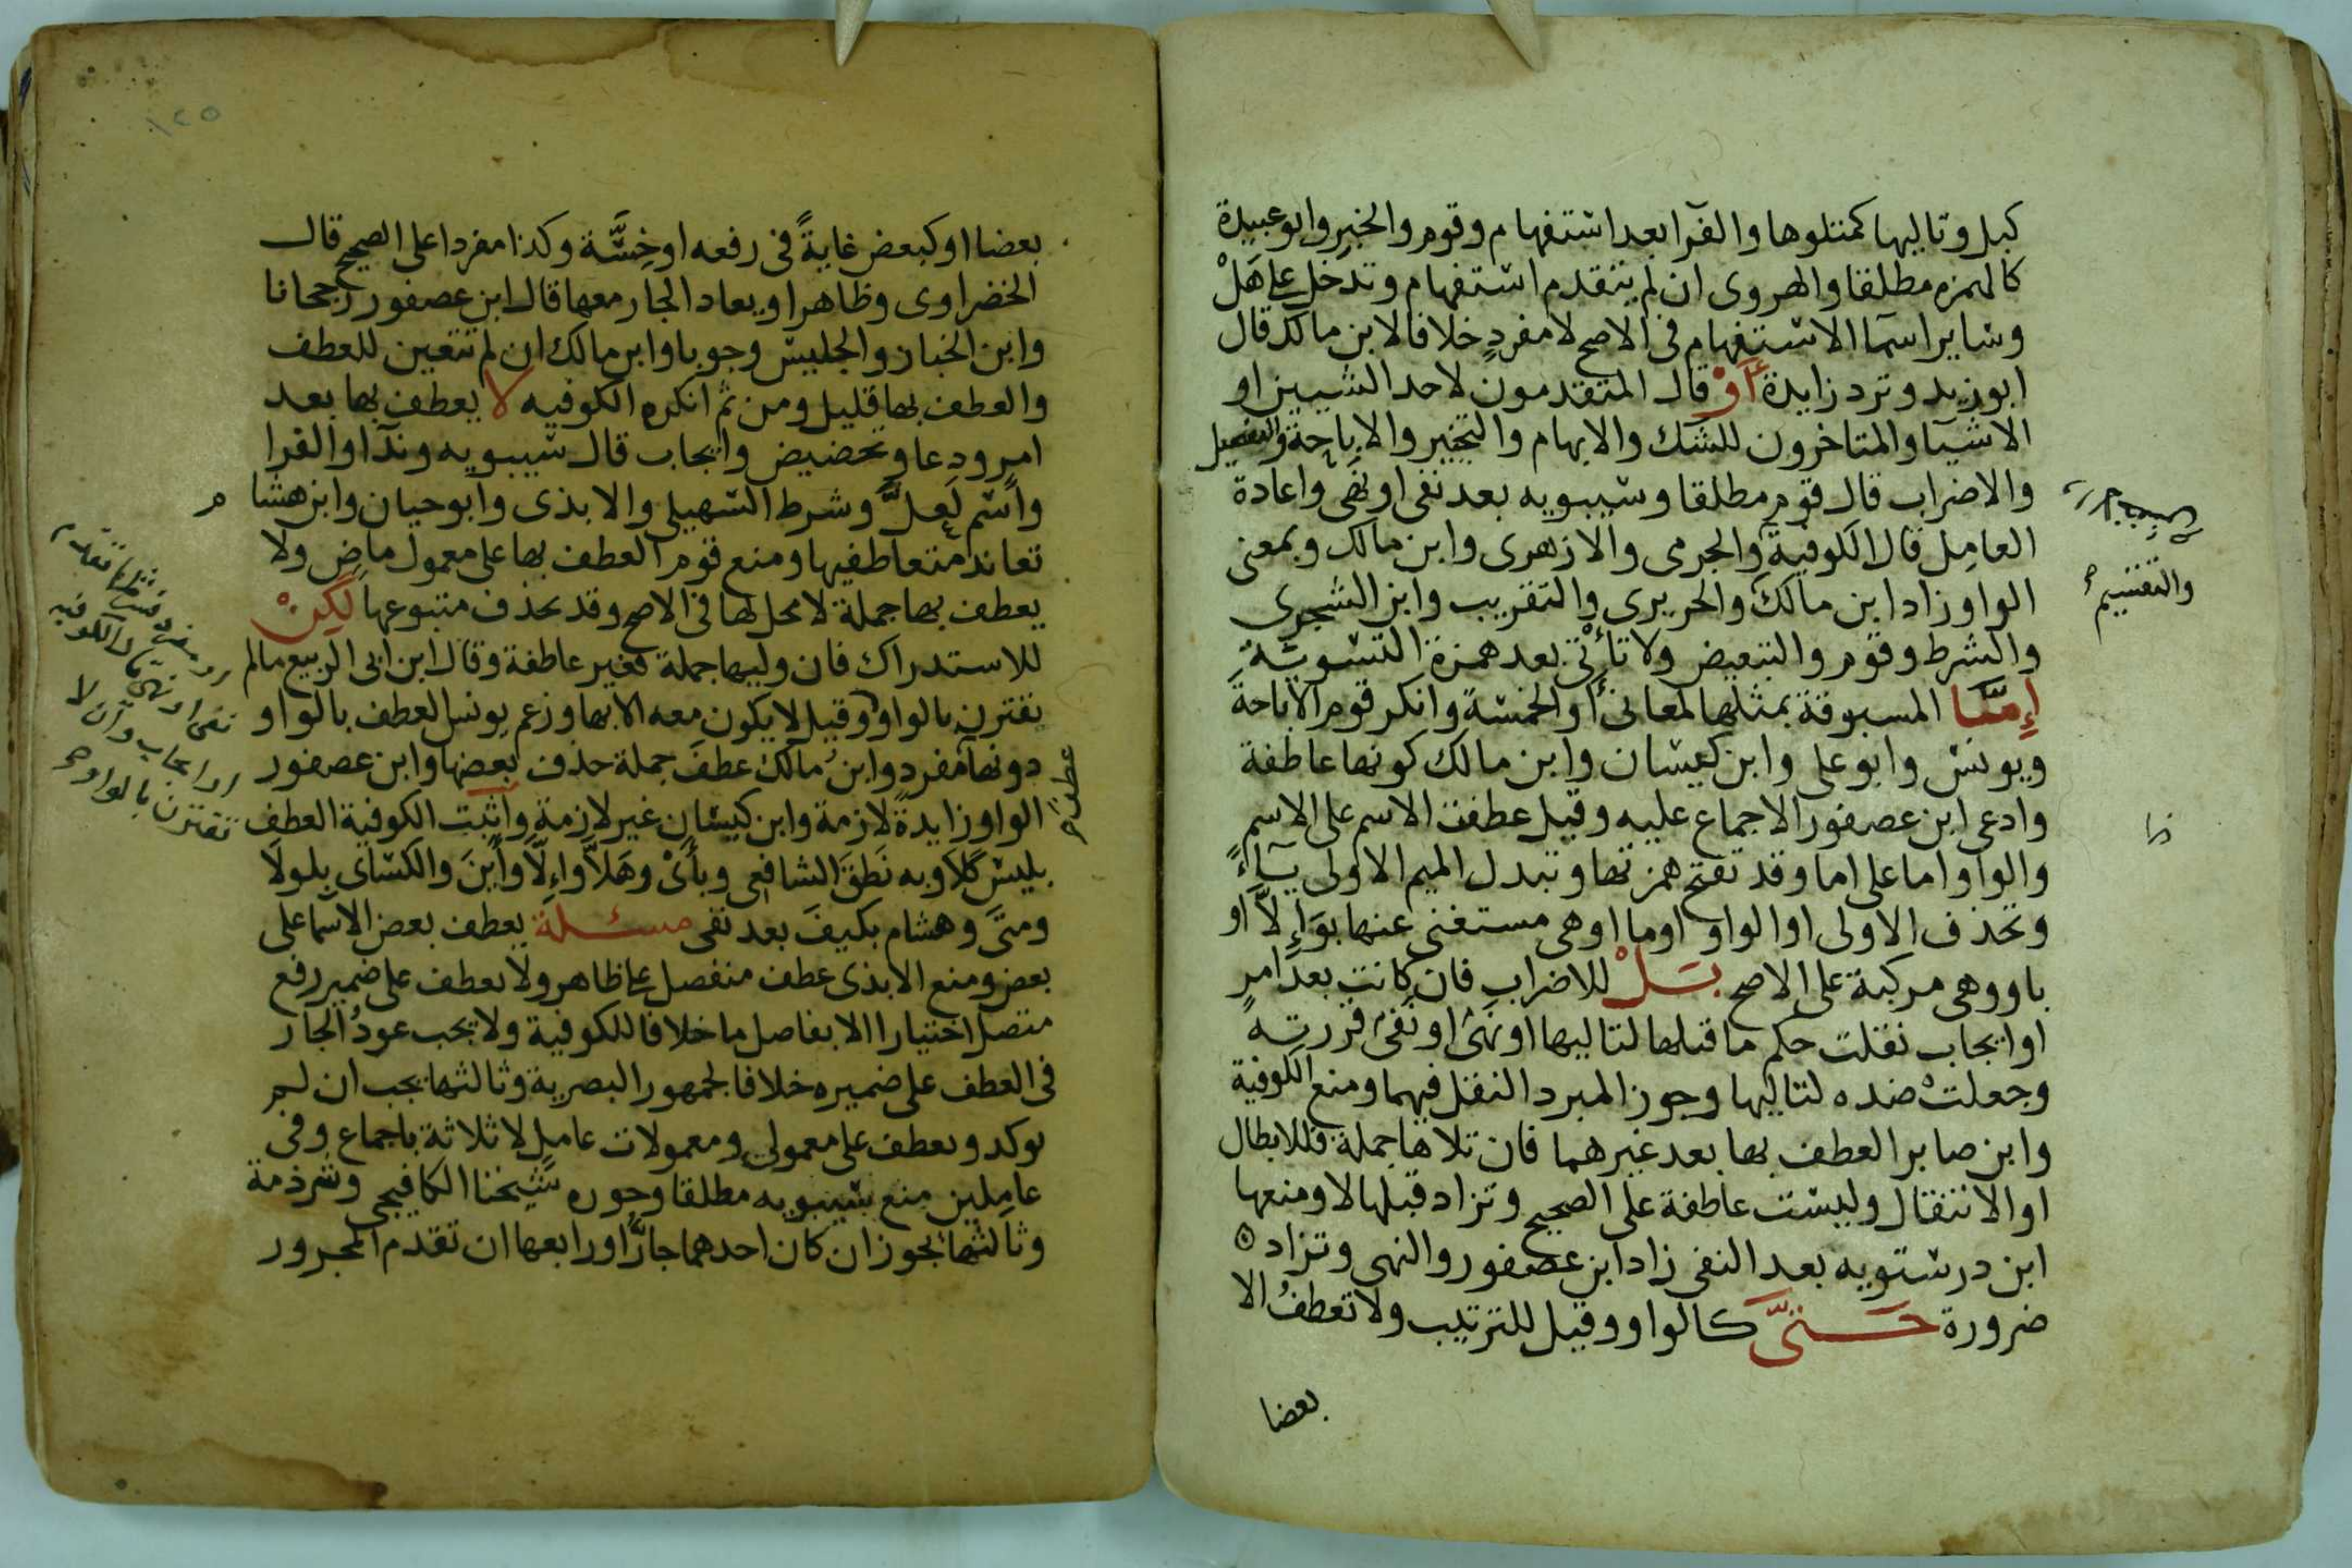 كبل وتاليها كمتلوها والفرا بعد استفهام وقوم والخبر وابو عبيدة
كالهمزه مطلقا والهروى ان لم يتقدم استفهام وتدخل على هَلْ
وساير اسما الاستفهام فى الاصح لا مفردٍ خلافا لابن مالك قال
ابو زيد وترد زايدة أَوْ قال المتقدمون لاحد الشيين او
الاشيا والمتاخرون للشك والابهام والتخيير والاباحة والتفصيل
والاضراب قال قوم مطلقا وسيبويه بعد نفى او نهى واعادة
العامِل قال الكوفية والجرمى والازهرى وابن مالك وبمعنى
الواو زاد ابن مالك والحريرى والتقريب وابن الشجرى
والشرط وقوم والتبعيض ولا تأتى بعد همزة التسوية
إِمَّا المسبوقة بمثلها لمعانى أو الخمسة وانكر قوم الاباحة
ويونس وابو على وابن كيسان وابن مالك كونها عاطفة
وادعى ابن عصفور الاجماع عليه وقيل عطفت الاسم على الاسم
والواو اما على اما وقد تفتح همزتها وتبدل الميم الاولى ياءً
وتحذف الاولى او الواو او ما او هى مستغنى عنها بوَإِلاَّ او
باو وهى مركبة على الاصح بَلْ للاضراب فان كانت بعد امرٍ
او ايجاب نقلت حكم ما قبلها لتاليها او نهى او نفى قررته
وجعلت ضده لتاليها وجوز المبرد النقل فيهما ومنع الكوفية
وابن صابر العطف بها بعد غيرهما فان تلاها جملة فللابطال
او الانتقال وليست عاطفة على الصحيح وتزاد قبلها لا ومنعها
ابن درستويه بعد النفى زاد ابن عصفور والنهى وتزاد ه
ضرورة حَتَّى كالواو وقيل للترتيب ولا تعطف الا
بعضا
والتقسيم
بعضا او كبعض غايةً فى رفعه او خِسَّة وكذا مفردا على الصحيح قال
الخضراوى وظاهرا ويعاد الجار معها قال ابن عصفور رجحانا
وابن الخباز والجليس وجوبا وابن مالك ان لم تتعين للعطف
والعطف بها قليل ومن ثم انكره الكوفيه لا يعطف بها بعد
امر ودعا وتحضيض وايجاب قال سيبويه وندآ والفرا
واسم لَعلَّ وشرط السهيلى والابذى وابو حيان وابن هشام
تعاند متعاطفيها ومنع قوم العطف بها على معمول ماضٍ ولا
يعطف بها جملة لا محل لها فى الاصح وقد تحذف متبوعها لكِنْ
للاستدراك فان وليها جملة فغير عاطفة وقال ابن ابى الربيع ما لم
تقترن بالواو وقيل لا يكون معه الا بها وزعم يونس العطف بالواو
دونها مفرد وابن مالك عطفَ جملة حذف بعضها وابن عصفور
الواو زايدة لازمة وابن كيسان غير لازمة واثبت الكوفية العطف
بليس كلا وبه نَطقَ الشافعى وبأَىْ وهَلاَّ وإِلاَّ وأَينَ والكساى بلولا
ومتَى وهشام بكيفَ بعد نفى مسئلة يعطف بعض الاسما على
بعض ومنع الابذى عطف منفصل على ظاهر ولا يعطف على ضمير رفع
متصل اختيارا الا بفاصل ما خلافا للكوفية ولا يجب عودُ الجار
فى العطف على ضميره خلافا لجمهور البصرية وثالثها يجب ان لم
يوكد ويعطف على معمولى ومعمولات عامِل لا ثلاثة باجماع وفى
عامِلين منع سيبويه مطلقا وجوزه شيخنا الكافيجى وشرذمة
وثالثها يجوز ان كان احدهما جارًّا ورابعها ان تقدم المجرور
نفى او نهى قال الكوفيه
او ايجاب وان لا
تقترن بالواو
١٢٥